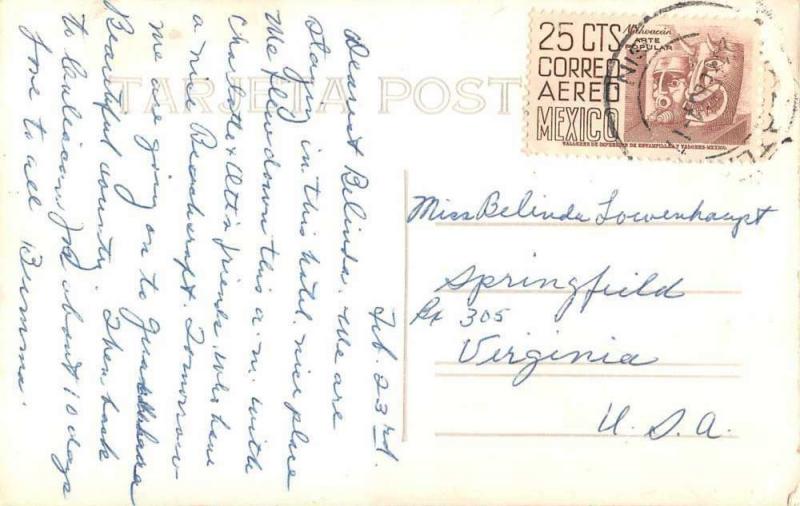 TARJETA POST
25 CTS
CORREO
AEREO
MEXICO
Michoacán
ARTE
POPULAR
TALLERES DE IMPRESION DE ESTAMPILLAS Y VALORES-MEXICO.
Feb. 23rd.
Dearest Belinda. We are
staying in this hotel. nice place
We flew down this a.m. with
Charlotte & Otto's friends who have
a nice Beachcraft. Tomorrow
we are going on to Guadalahara
Beautiful country. Then back
to Culiacan for about 10 days
love to all
Miss Belinda Lowenhaupt
Springfield
Rt 305
Virginia
U.S.A.